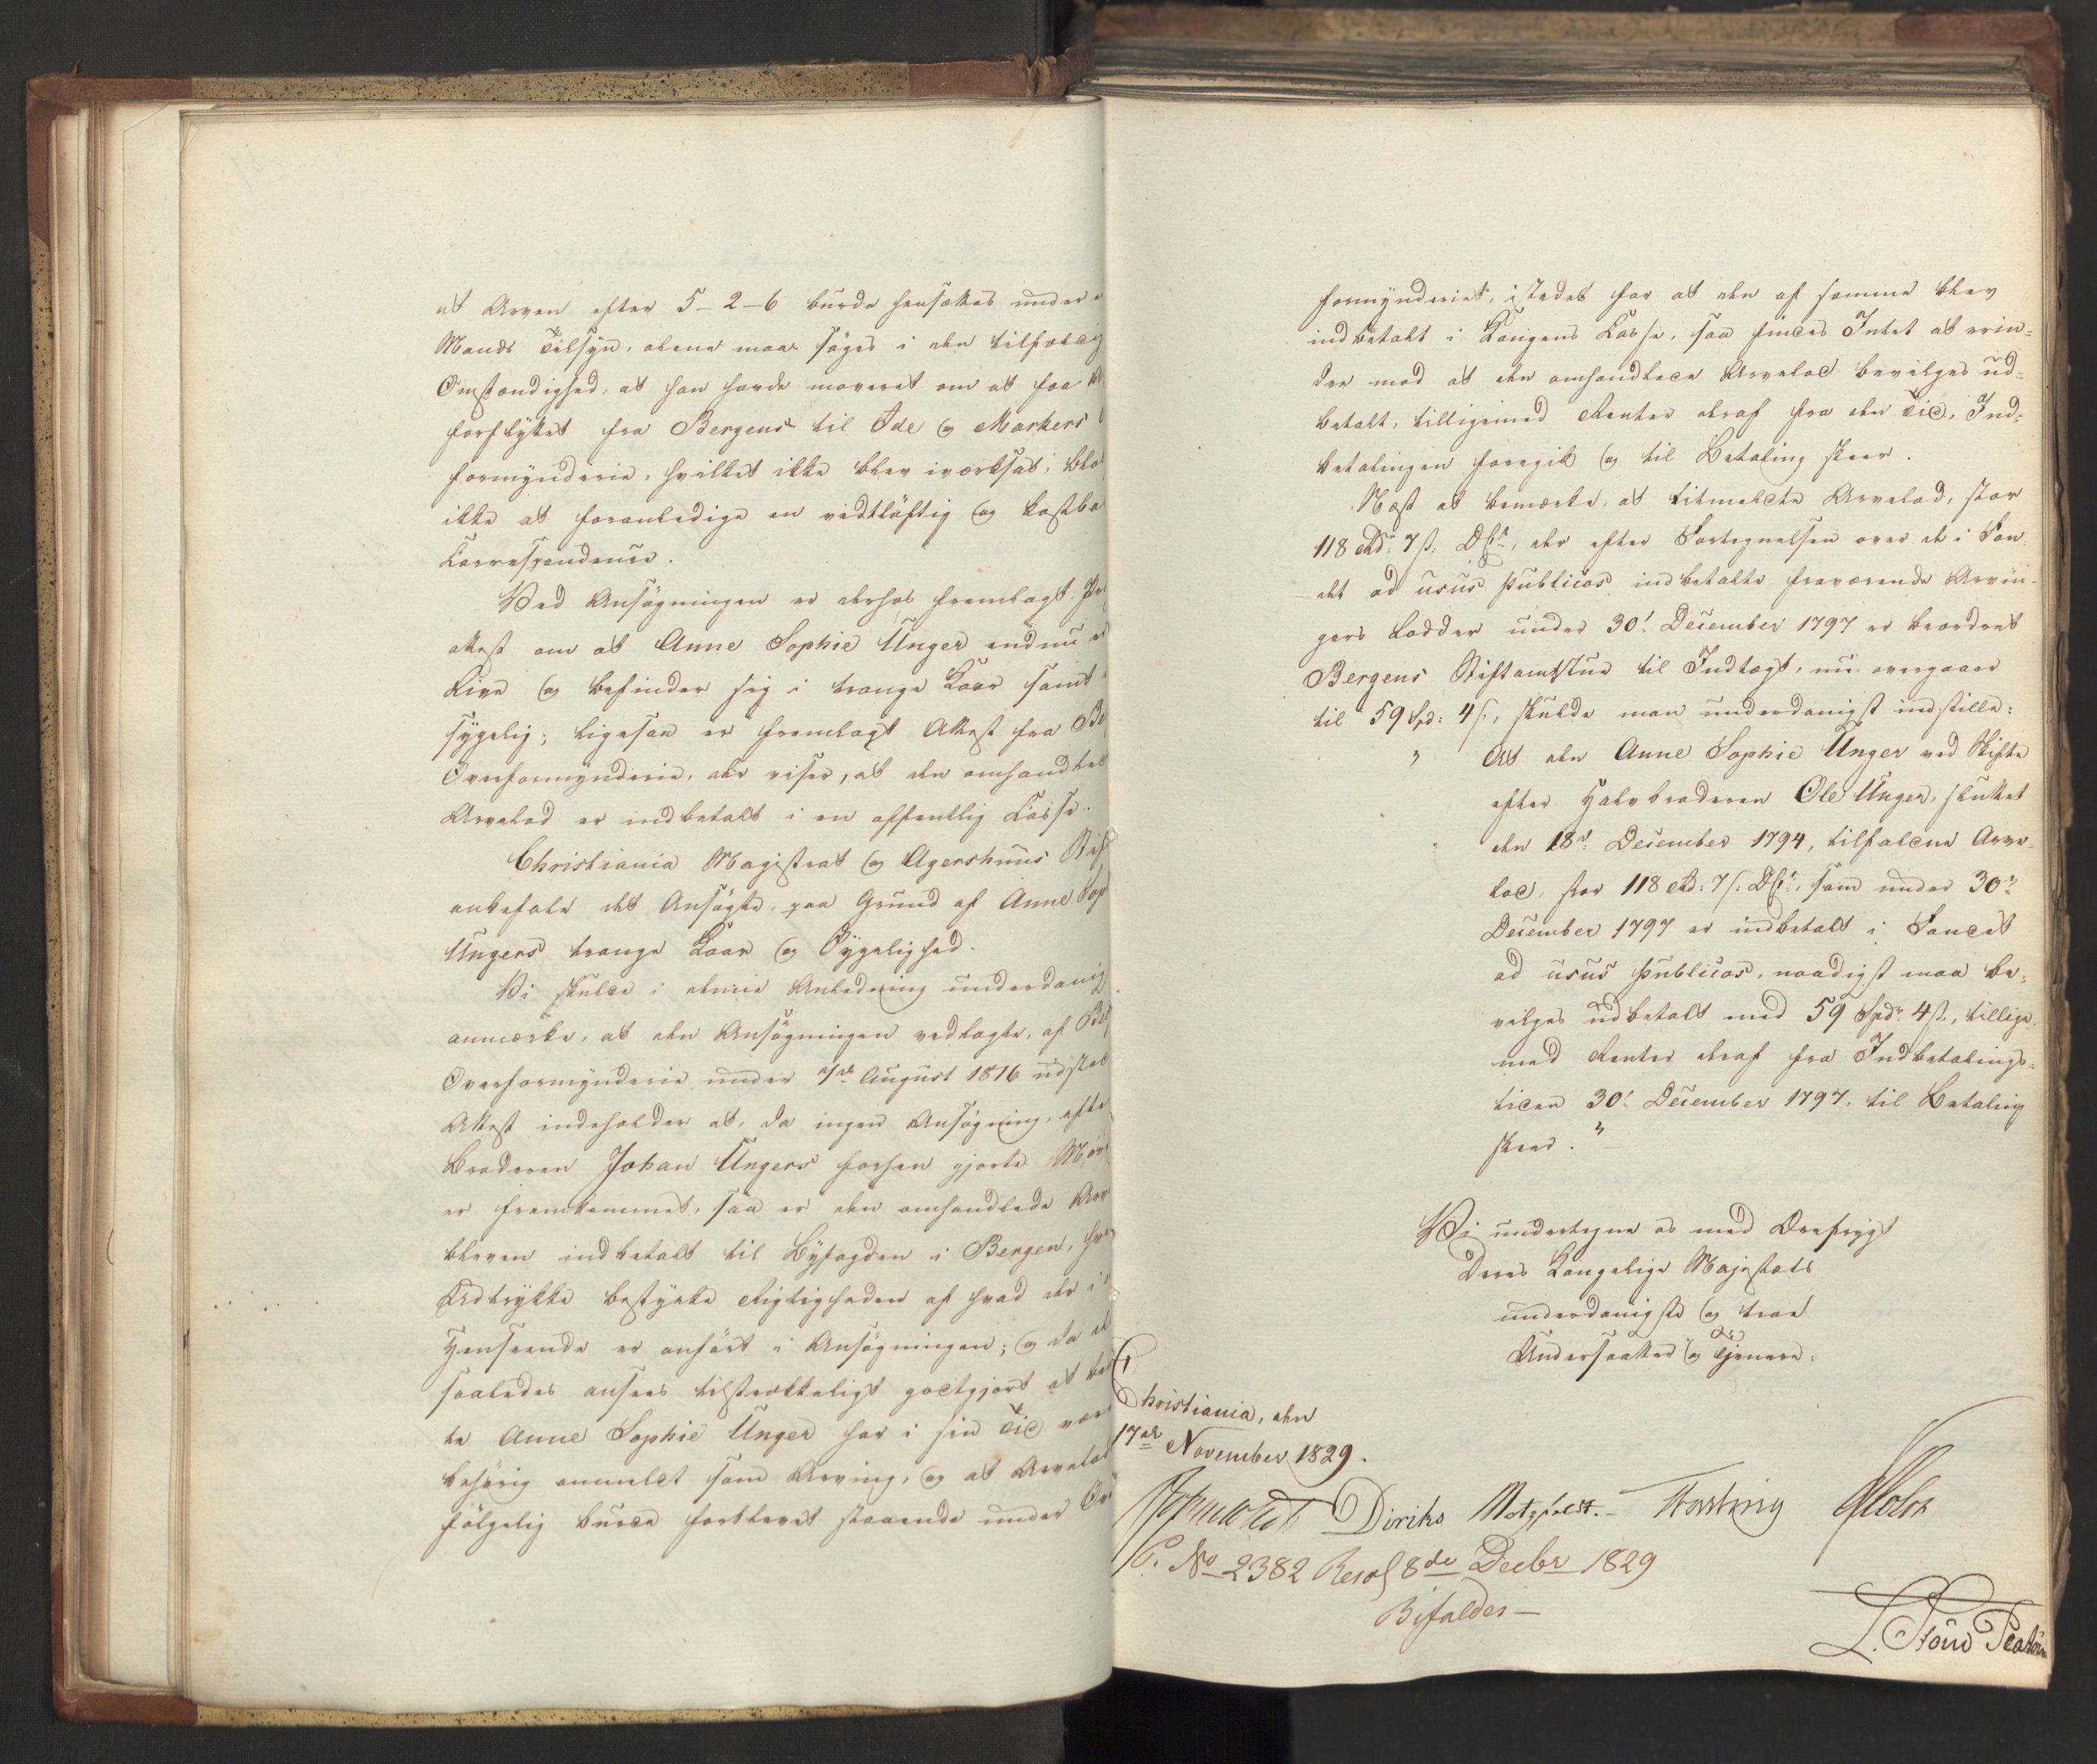 at Arven efter 5-2-6 burde hensættes under
Mands Tilsyn, alene maa søges i den tilfældig
Omstændighed, at han havde moveret om at faa
forflyttet fra Bergens til Ide og Markers
formynderie, hvilket ikke blev iværksat, blot
ikke at foranledige en vidtløftig og kostba
Correspondence.
Ved Ansøgningen er derhos fremlagt
Attest om at Anne Sophie Unger endnu er
Live og befinder sig i trange Kaar samt
sygelig; ligesaa er fremlagt Attest fra Be
Overformynderie, der viser, at den omhandlede
Arvelod er indbetalt i en offentlig Casse.
Christiania Magistrat og Agershuus Stif
anbefale det Ansøgte, paa Grund af Anne Sop
Ungers trange Kaar og Sygelighed.
Vi skulde i denne Anledning underdanig
anmærke, at den Ansøgningen vedlagte, af Be
Overformynderie under August 1816 udsted
Attest indeholder at, da ingen Ansøgning, efte
Broderen Johan Ungers forhen gjorte
er fremkommet, saa er den omhandlede Arv
bleven indbetalt til Byfogden i Bergen,
Udtrykke bestyrke Rigtigheden af hvad der i
Henseende er anført i Ansøgningen; og da
saaledes ansees tilstrækkeligt godtgjort at
te Anne Sophie Unger har i sin Tid vær
behørig anmeldt som Arving, og at Arvelod
følgelig burde forblevet staaende under Ov
formynderiet, istedet for at den af samme blev
indbetalt i Kongens Casse, saa findes Intet at erin-
dre mod at den omhandlede Arvelod bevilges ud-
betalt, tilligemed Renter deraf fra den Tid, Ind-
betalingen foregik og til Betaling skeer.
Næst at bemærke, at bemeldte Arvelod, stor
118 Rd: 7 ß: D.C., der efter Fortegnelsen over de i Fon-
det ad usus publicos indbetalte fraværende Arvin-
gers Lodder under 30' December 1797 er beordret
Bergens Stiftamtstue til Indtægt, nu overgaaer
til 59 Spd: 4 ß, skulde man underdanigst indstille:
" At den Anne Sophie Unger ved Skifte
efter Halvbroderen Ole Unger, sluttet
den 18' December 1794, tilfaldne Arve-
lod, stor 118 Rd: 7 ß: D.C., som under 30'
December 1797 er indbetalt i Fondet
ad usus publicos, naadigst maa be-
vilges udbetalt med 59 Spd: 4 ß, tillige-
med Renter deraf fra Indbetalings-
tiden 30' December 1797, til Betaling
skeer."
Vi undertegne os med Ærefrygt
Deres Kongelige Majestæts
underdanigste og troe
Undersaatter og Tjenere:
Christiania, den
17de November 1829.
Diriks Motzfeldt. Fasting Holst
P. No 2382 Resol 8de Decbr 1829
Bifaldes
L. Stoud Platou